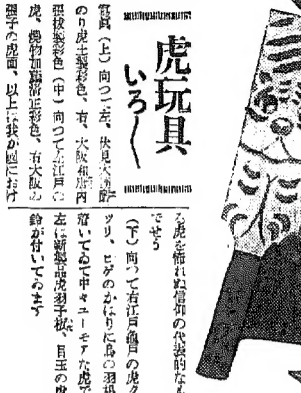 虎玩具
いろ〳〵
(上)向つて左、伏見大
のり虎土製彩色、右、大阪和藤内
張抜製彩色(中)向つて左江戸の
虎、練物加藤清正彩色、右大阪の
張子の虎面、以上は我が国におけ
る虎を怖れぬ信仰の代表的なも
でせう
(下)向つて右江戸亀戸の虎
ツリ、ヒゲのかはりに鳥の羽根
着いてゐて中々ユーモアな虎で
左は新製品虎羽子板、目玉の虎
鈴が付いてゐます